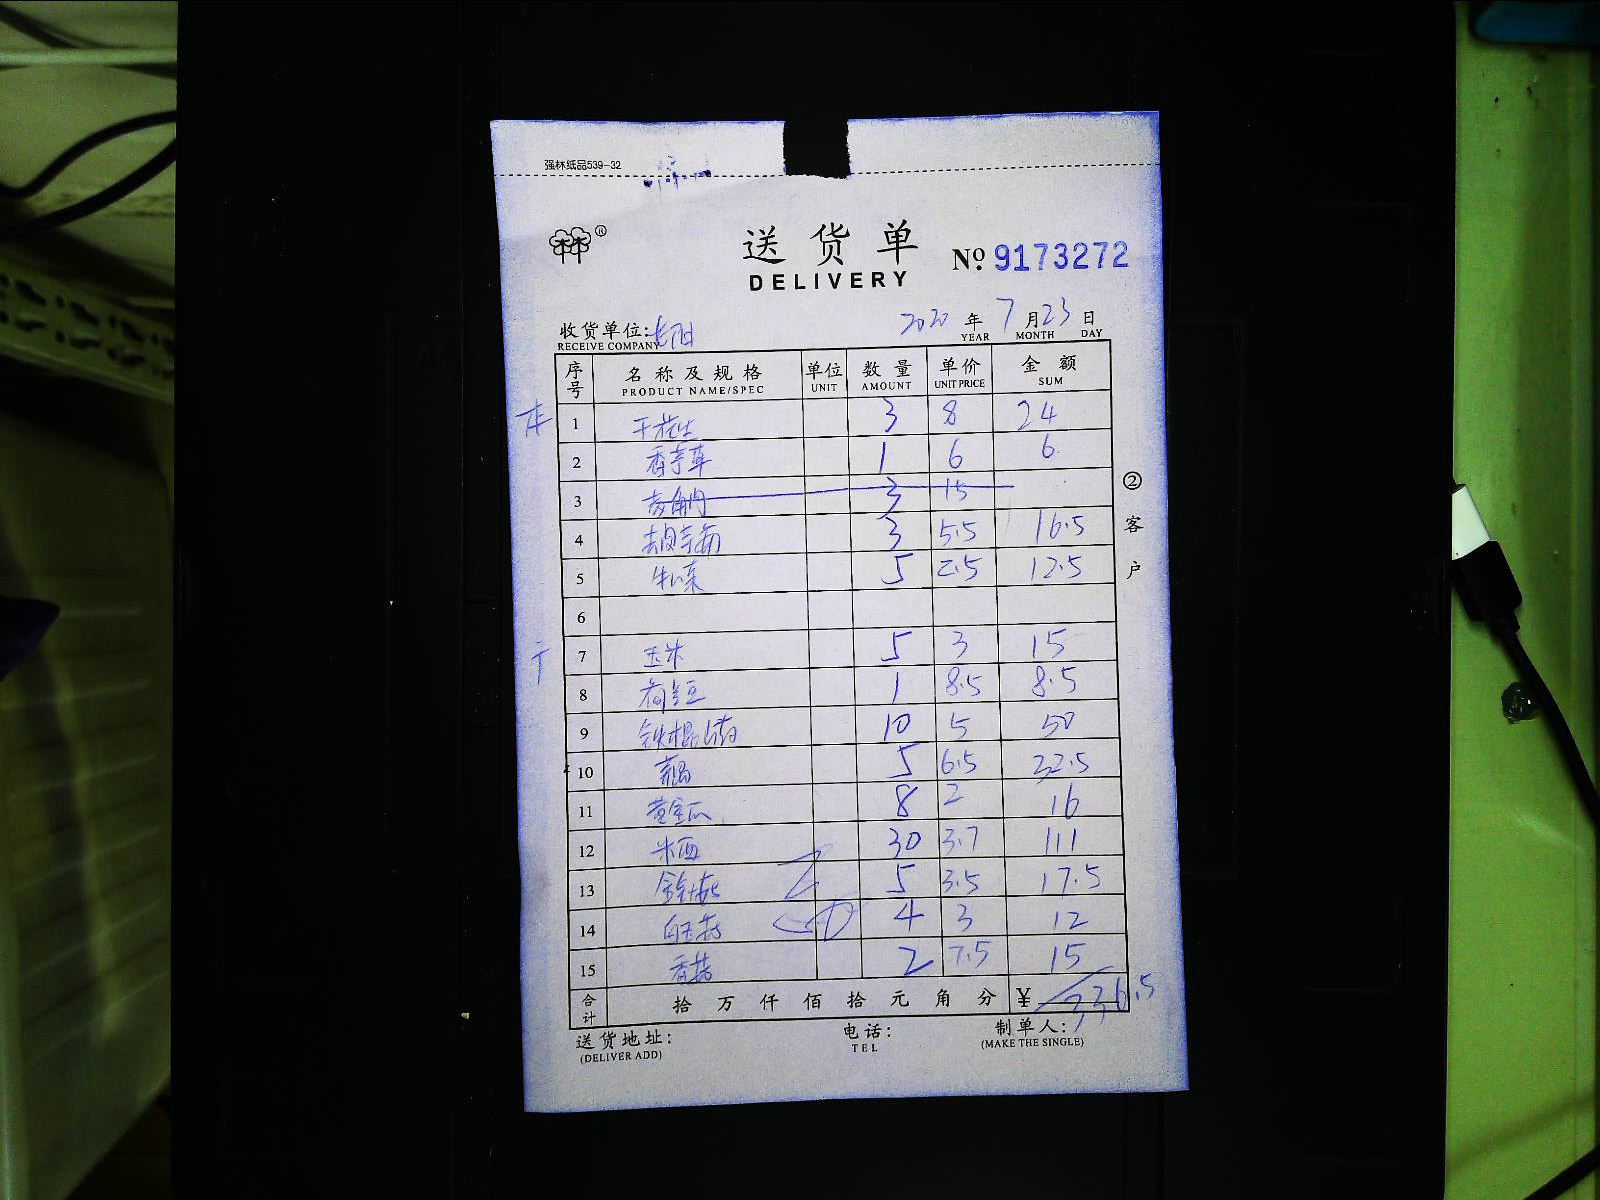 强林纸品539-32
林林 ®
送货单
DELIVERY
Nº 9173272
收货单位:
RECEIVE COMPANY
2020 年 7 月 23 日
YEAR MONTH DAY
序号 名称及规格 单位 数量 单价 金额
PRODUCT NAME/SPEC UNIT AMOUNT UNIT PRICE SUM
1 干花生 3 8 24
2 香芋草 1 6 6
3 3 15
4 去皮芋艿 3 5.5 16.5
5 牛心菜 5 2.5 12.5
6
7 玉米 5 3 15
8 荷兰豆 1 8.5 8.5
9 铁棍山药 10 5 50
10 5 6.5 32.5
11 黄金瓜 8 2 16
12 米西 30 3.7 111
13 金针菇 5 3.5 17.5
14 白玉菇 4 3 12
15 香菇 2 7.5 15
合计 拾 万 仟 佰 拾 元 角 分 ¥ 336.5
②客户
送货地址: 电话: 制单人:
(DELIVER ADD) TEL (MAKE THE SINGLE)